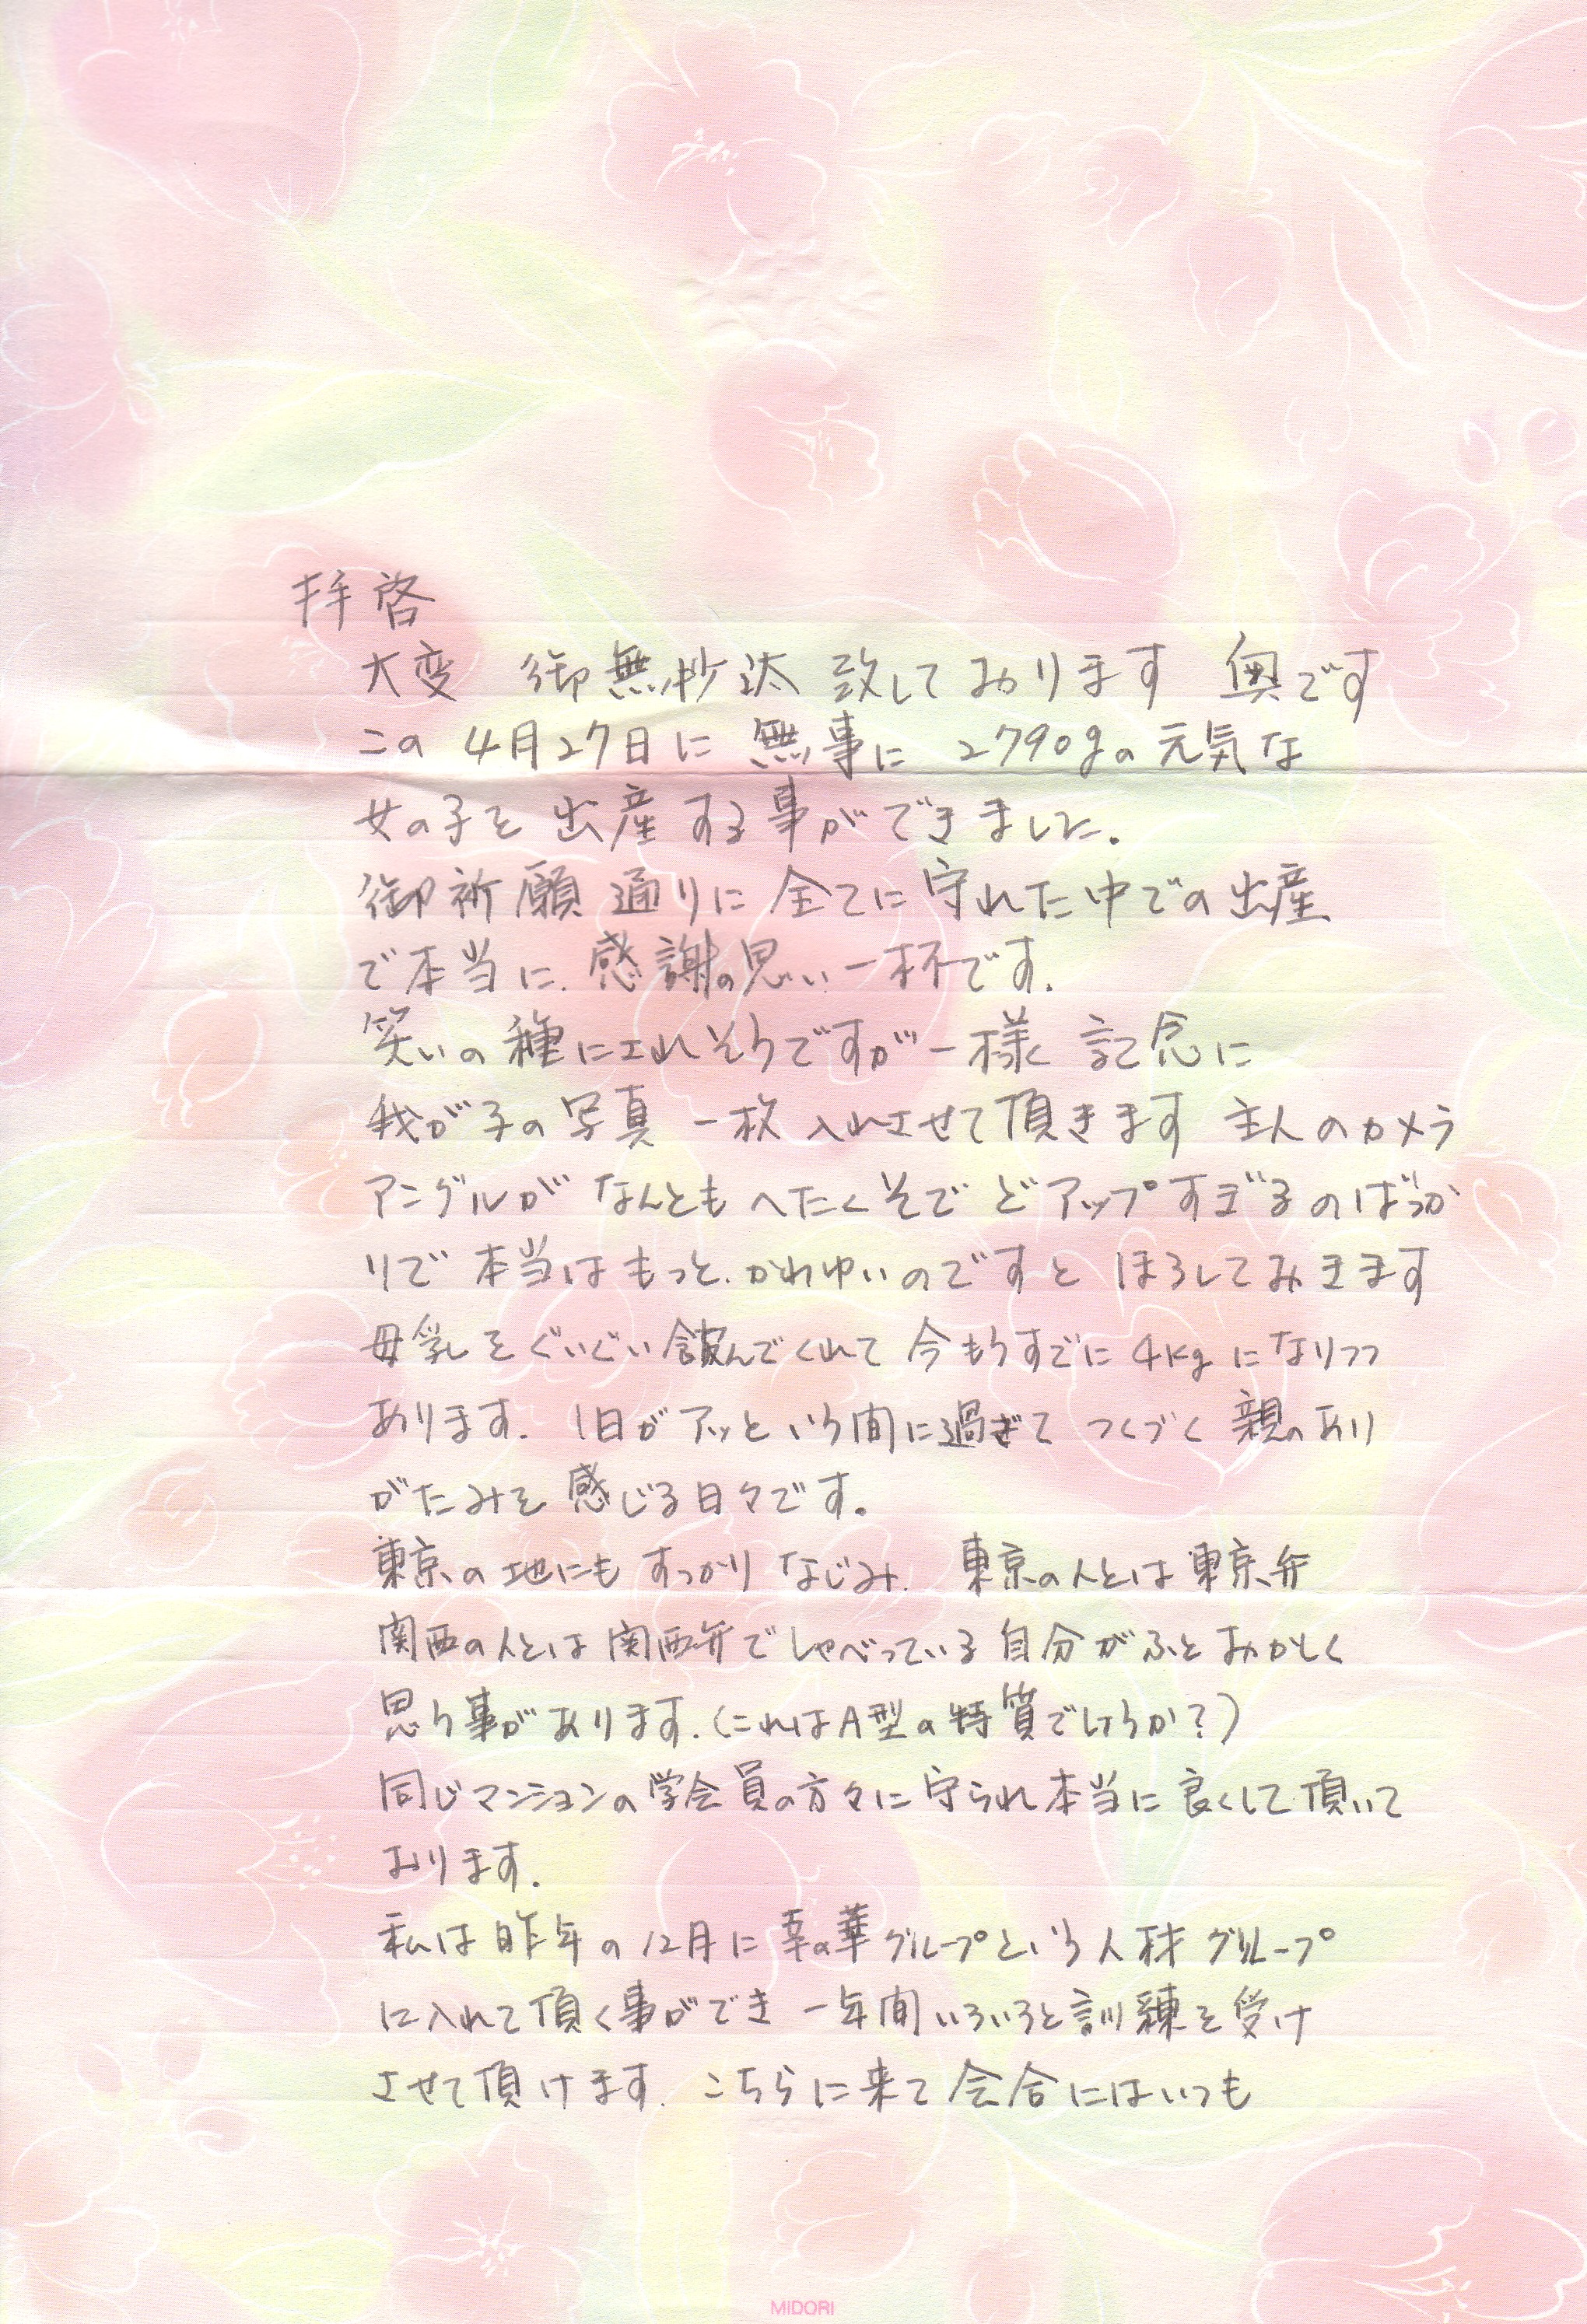 拝啓
大変 御無沙汰 致しております 奥です
この 4月27日に 無事に 2790gの 元気な
女の子を 出産 する事ができました。
御祈願 通りに 全てに 守れた中での出産
で本当に、感謝の思い一杯です。
笑いの種にされそうですが一様 記念に
我が子の写真 一枚 入れさせて頂きます 主人のカメラ
アングルが なんとも へたくそで どアップすぎるのばっか
りで 本当は もっと、かわゆいのですと ほろしておきます
母乳を ぐいぐい 飲んでくれて 今もうすでに 4kgになりつつ
あります。1日がアッという間に過ぎて つくづく 親のあり
がたみを 感じる日々です。
東京の地にも すっかり なじみ、東京の人とは東京弁
関西の人とは 関西弁で しゃべっている自分がふとおかしく
思う事があります。(これはA型の特質でしょうか?)
同じマンションの学会員の方々に守られ本当に良くして頂いて
おります。
私は昨年の12月に 幸の華グループという人材グループ
に入れて頂く事ができ 一年間いろいろと訓練を受け
させて頂けます。こちらに来て会合にはいつも
MIDORI